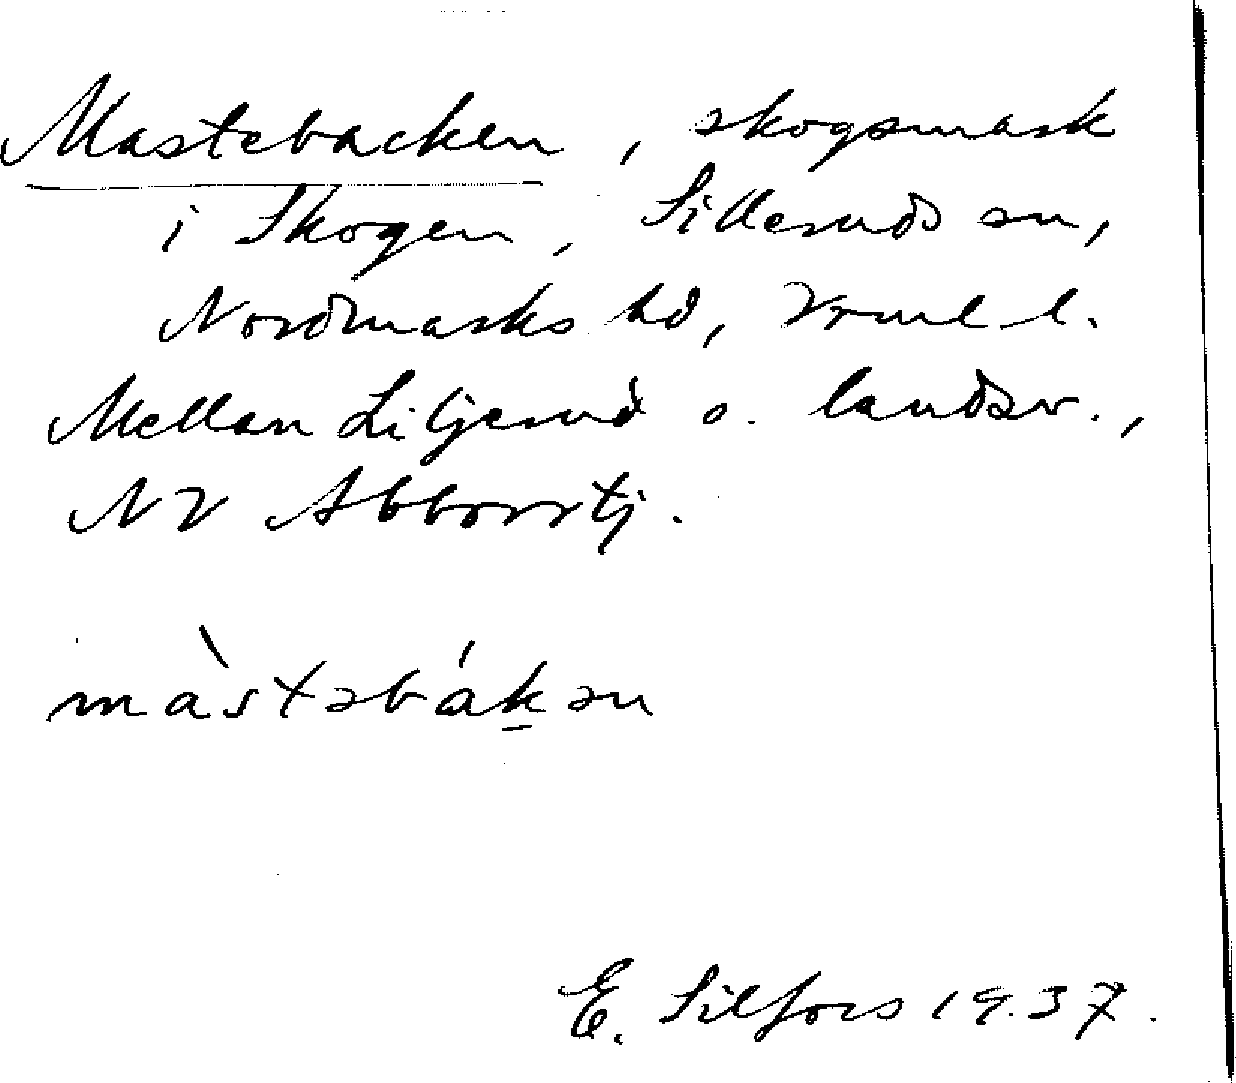 Mastebacken, skogsmark
i Skogen, Silleruds sn,
Nordmarks hd, Vrml l.
Mellan Liljerud o. landsv.,
NV Abborrtj.
màstəbákən
E. Silfors 1937.